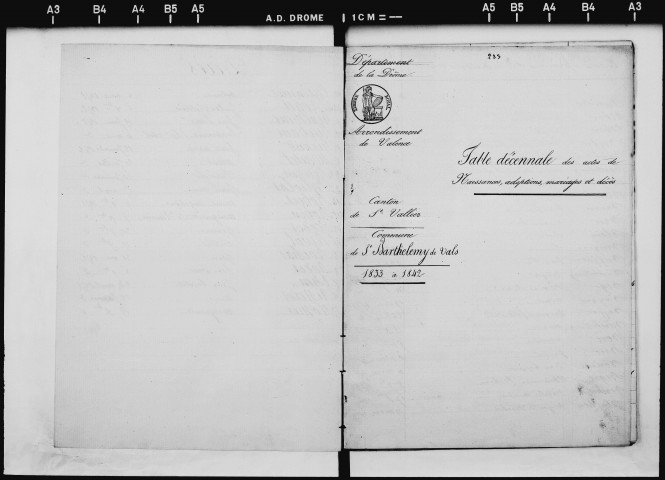 A3 B4 A4 B5 A5
A.D. DROME
1 CM =
A5 B5 A4 B4 A3
Département
de la Drôme
Arrondissement
de Valence
Canton
de St Vallier
Commune
de St Barthelemy de Vals
1833 à 1842
233
Table décennale des actes de
Naissances, adoptions, mariages et décès